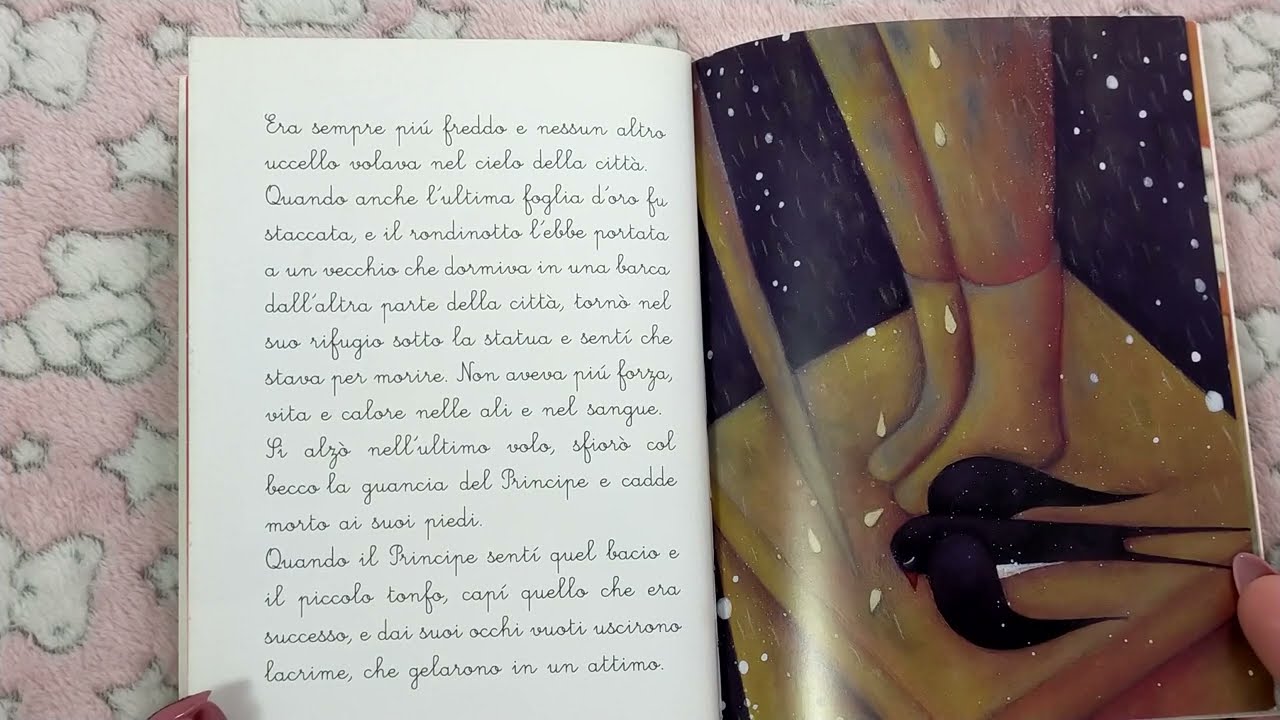 Era sempre piú freddo e nessun altro
uccello volava nel cielo della città.
Quando anche l'ultima foglia d'oro fu
staccata, e il rondinotto l'ebbe portata
a un vecchio che dormiva in una barca
dall'altra parte della città, tornò nel
suo rifugio sotto la statua e sentí che
stava per morire. Non aveva piú forza,
vita e calore nelle ali e nel sangue.
Si alzò nell'ultimo volo, sfiorò col
becco la guancia del Principe e cadde
morto ai suoi piedi.
Quando il Principe sentí quel bacio e
il piccolo tonfo, capí quello che era
successo, e dai suoi occhi vuoti uscirono
lacrime, che gelarono in un attimo.